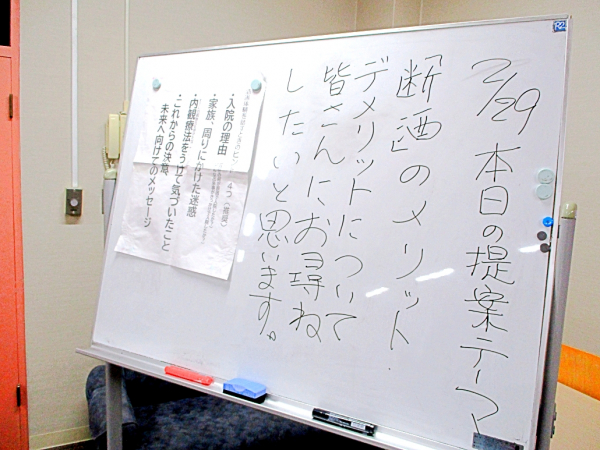 2/29 本日の提案テーマ
「断酒」のメリット・
デメリットについて
皆さんにお尋ね
したいと思います。
4つ
・入院の理由
・家族、周りにかけた迷惑
・内観療法をうけて気づいたこと
・これからの決意、
未来へ向けてのメッセージ